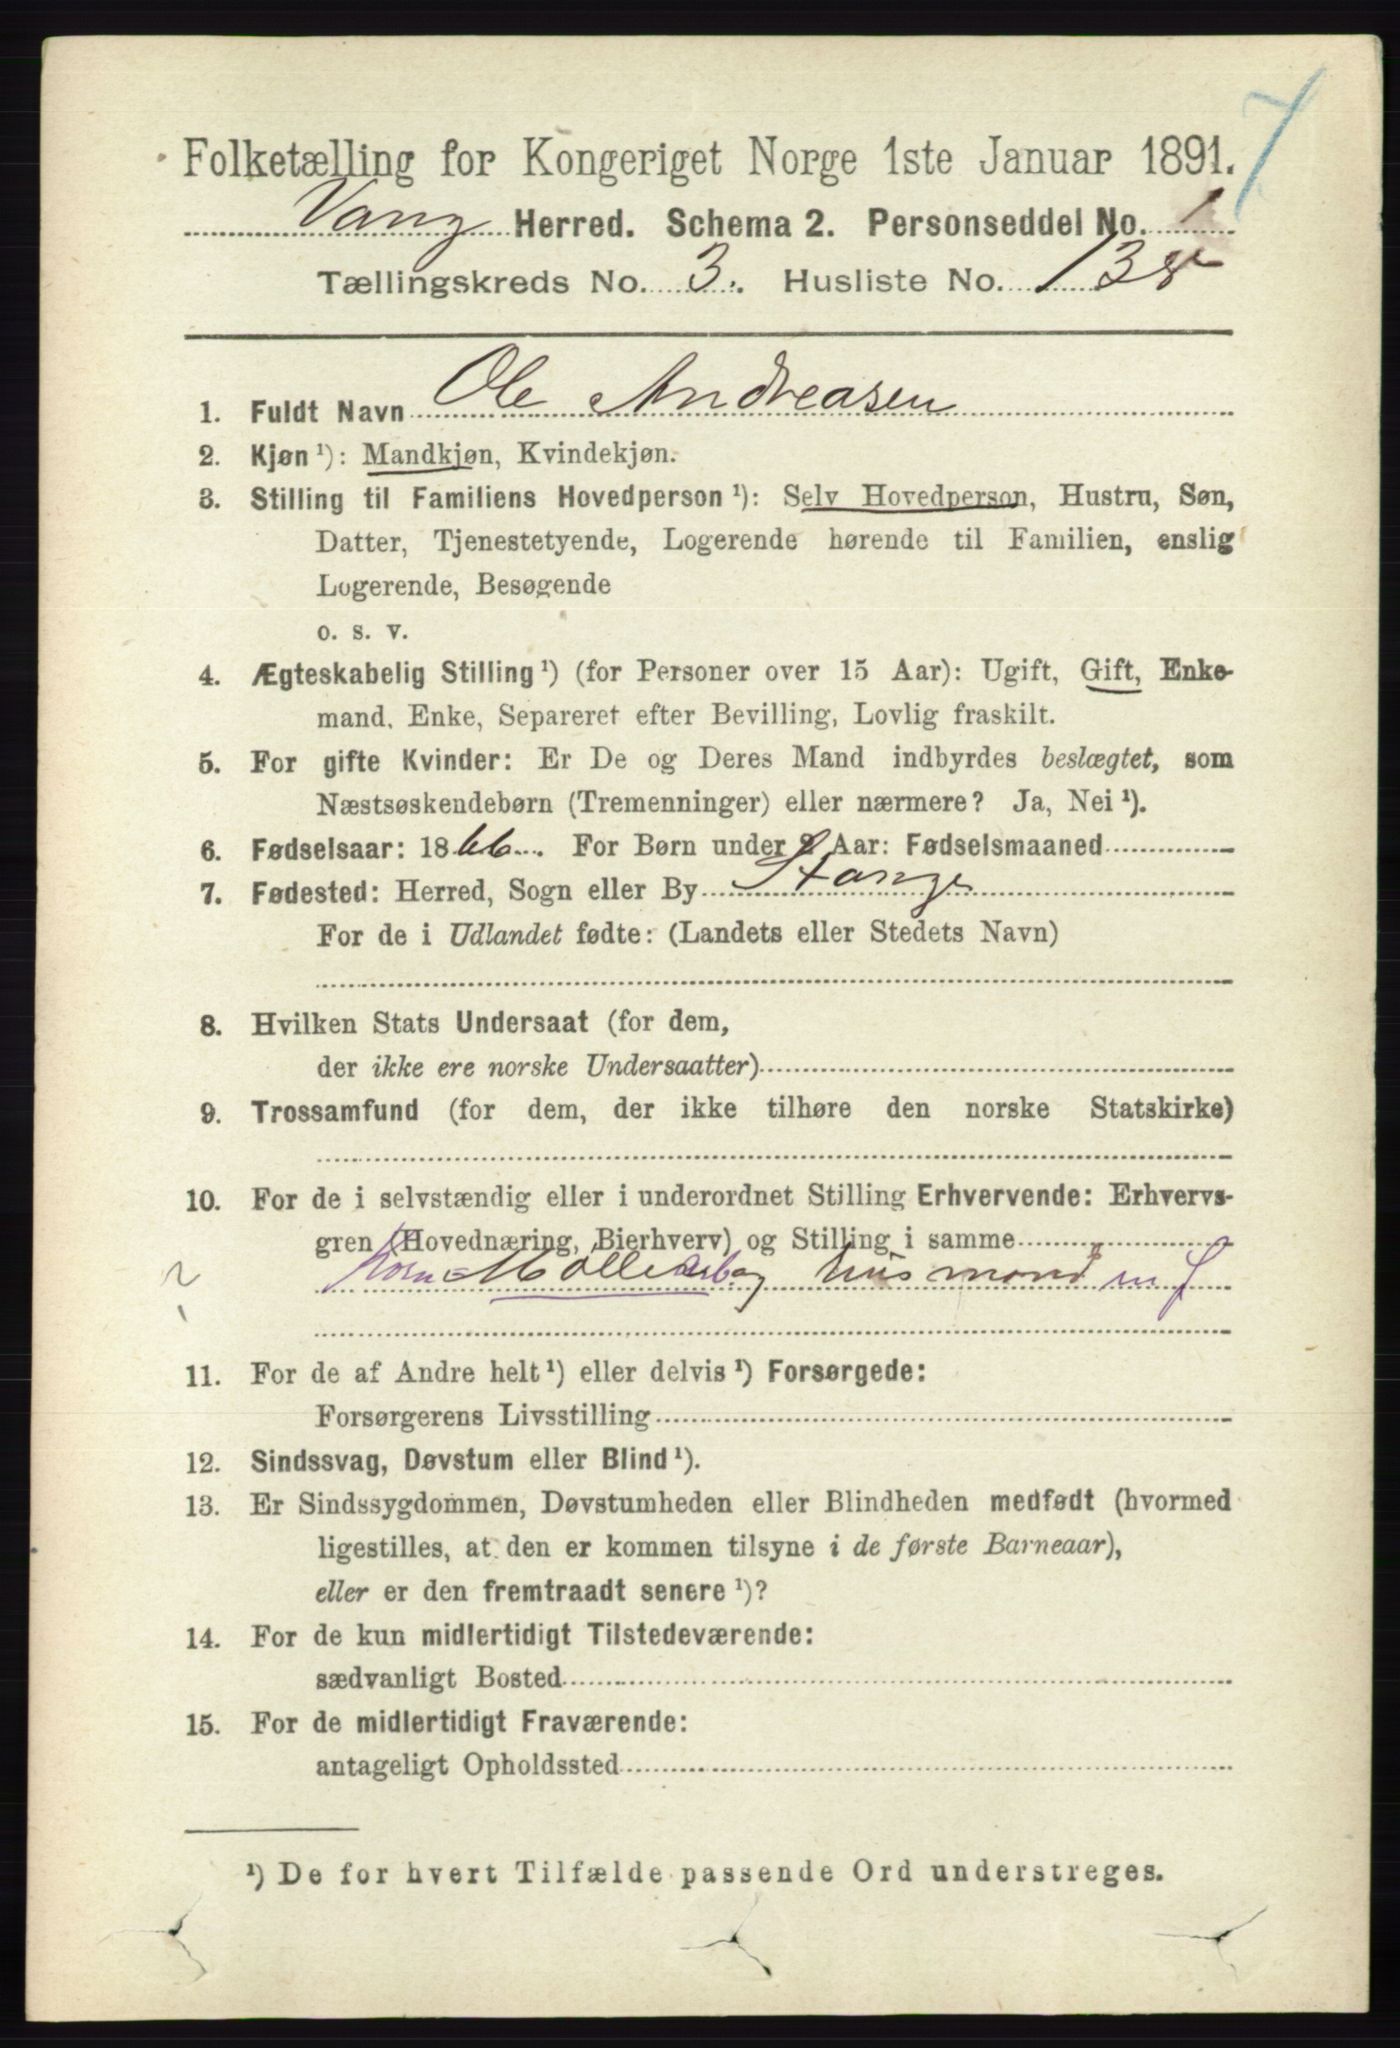 Folketælling for Kongeriget Norge 1ste Januar 1891.
Vang Herred. Schema 2. Personseddel No. 1
Tællingskreds No. 3. Husliste No. 138
1. Fuldt Navn Ole Andreasen
2. Kjøn ¹): Mandkjøn, Kvindekjøn.
3. Stilling til Familiens Hovedperson ¹): Selv Hovedperson, Hustru, Søn,
Datter, Tjenestetyende, Logerende hørende til Familien, enslig
Logerende, Besøgende
o. s. v.
4. Ægteskabelig Stilling ¹) (for Personer over 15 Aar): Ugift, Gift, Enke-
mand, Enke, Separeret efter Bevilling, Lovlig fraskilt.
5. For gifte Kvinder: Er De og Deres Mand indbyrdes beslægtet, som
Næstsøskendebørn (Tremenninger) eller nærmere? Ja, Nei ¹).
6. Fødselsaar: 1866. For Børn under 2 Aar: Fødselsmaaned
7. Fødested: Herred, Sogn eller By Stange
For de i Udlandet fødte: (Landets eller Stedets Navn)
8. Hvilken Stats Undersaat (for dem,
der ikke ere norske Undersaatter)
9. Trossamfund (for dem, der ikke tilhøre den norske Statskirke)
10. For de i selvstændig eller i underordnet Stilling Erhvervende: Erhvervs-
gren (Hovednæring, Bierhverv) og Stilling i samme
Korn= Mølle arb. og husmand m J
11. For de af Andre helt ¹) eller delvis ¹) Forsørgede:
Forsørgerens Livsstilling
12. Sindssvag, Døvstum eller Blind ¹).
13. Er Sindssygdommen, Døvstumheden eller Blindheden medfødt (hvormed
ligestilles, at den er kommen tilsyne i de første Barneaar),
eller er den fremtraadt senere ¹)?
14. For de kun midlertidigt Tilstedeværende:
sædvanligt Bosted
15. For de midlertidigt Fraværende:
antageligt Opholdssted
¹) De for hvert Tilfælde passende Ord understreges.